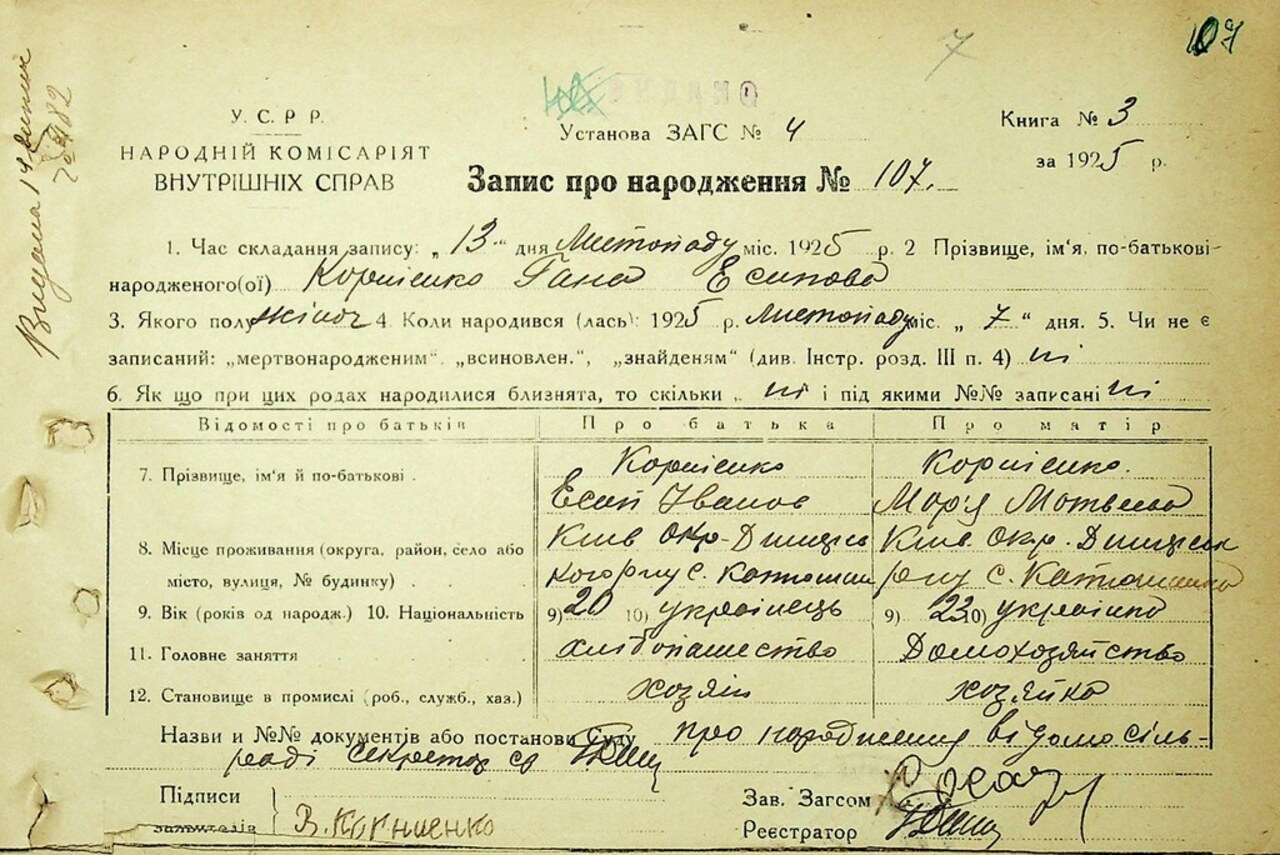 107
7
У. С. Р Р.
Установа ЗАГС № 4
Книга № 3
НАРОДНІЙ КОМІСАРІЯТ
за 1925 р.
ВНУТРІШНІХ СПРАВ
Запис про народження № 107.
1. Час складання запису: „13“ дня Листопаду міс. 1925 р. 2 Прізвище, ім'я, по-батькові
народженого(ої) Корнієнко Гана Есипова
3. Якого полу жіноч 4. Коли народився (лась): 1925 р. Листопаду міс. „7“ дня. 5. Чи не є
записаний: „мертвонародженим“. „всиновлен.“, „знайденям“ (див. Інстр. розд. III п. 4) ні
6. Як що при цих родах народилися близнята, то скільки ні і під якими №№ записані ні
Відомості про батьків Про батька Про матір
7. Прізвище, ім'я й по-батькові . Корнієнко Корнієнко.
Есип Іванов Мар'я Матвеева
8. Місце проживання (округа, район, село або Київ Окр. Київ. Окр.
місто, вулиця, № будинку) . с. с.
9. Вік (років од народж.) 10. Національність 9) 20 10) українець 9) 23 10) українка
11. Головне заняття хлібопашество Домохозяйство
12. Становище в промислі (роб., служб., хаз.) хозяін хозяйка
Назви и №№ документів або постанови Суду про народження відомо сіль-
раді секретар
Підписи
Зав. Загсом
заявителів В. Корниенко
Реєстратор